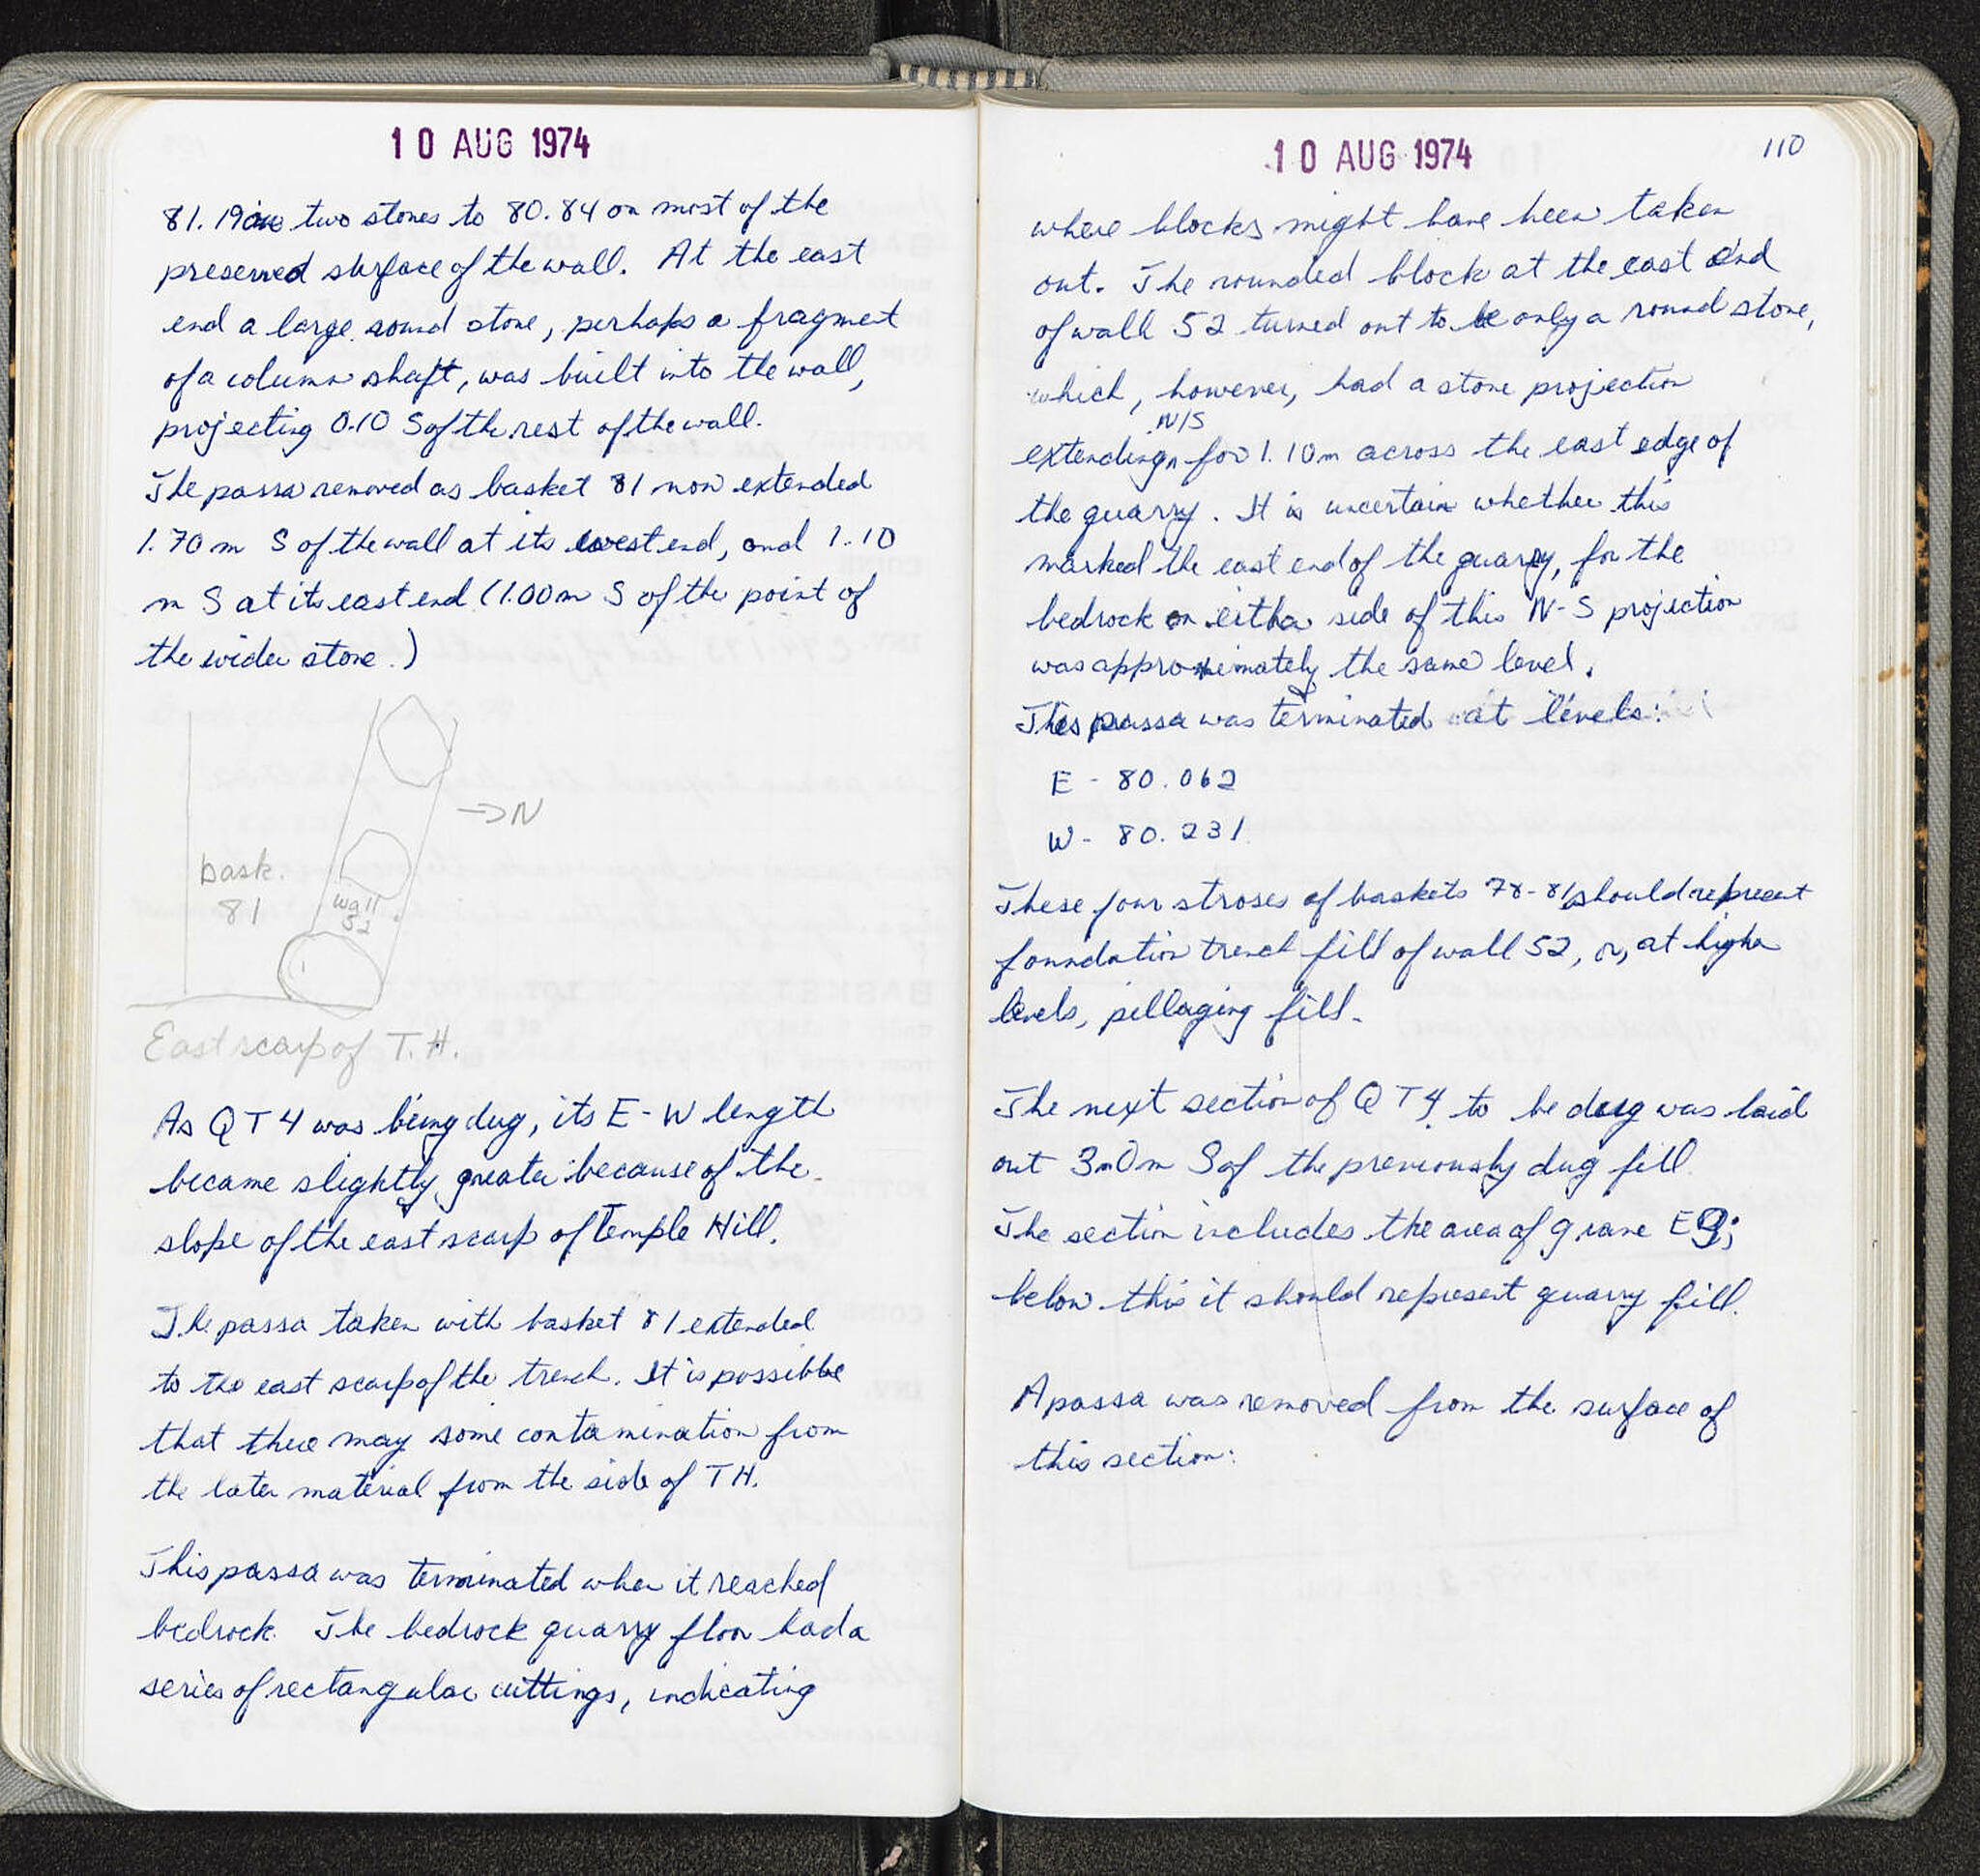 10 AUG 1974
81.19 on two stones to 80.84 on most of the
preserved surface of the wall. At the east
end a large round stone, perhaps a fragment
of a column shaft, was built into the wall,
projecting 0.10 S of the rest of the wall.
The passa removed as basket 81 now extended
1.70 m S of the wall at its west end, and 1.10
m S at its east end (1.00 m S of the point of
the wider stone.)
→N
bask.
81
wall
52
East scarp of T.H.
As QT4 was being dug, its E-W length
became slightly greater because of the
slope of the east scarp of Temple Hill.
The passa taken with basket 81 extended
to the east scarp of the trench. It is possible
that there may some contamination from
the later material from the side of TH.
This passa was terminated when it reached
bedrock. The bedrock quarry floor had a
series of rectangular cuttings, indicating
10 AUG 1974
110
where blocks might have been taken
out. The rounded block at the east end
of wall 52 turned out to be only a round stone,
which, however, had a stone projection
N/S
extending for 1.10m across the east edge of
the quarry. It is uncertain whether this
marked the east end of the quarry, for the
bedrock on either side of this N-S projection
was approximately the same level.
This passa was terminated at levels:
E - 80.062
W - 80.231
These four stroses of baskets 78-81 should represent
foundation trench fill of wall 52, or, at higher
levels, pillaging fill.
The next section of QT4 to be dug was laid
out 3.0m S of the previously dug fill.
The section includes the area of grave E9;
below this it should represent quarry fill.
A passa was removed from the surface of
this section: